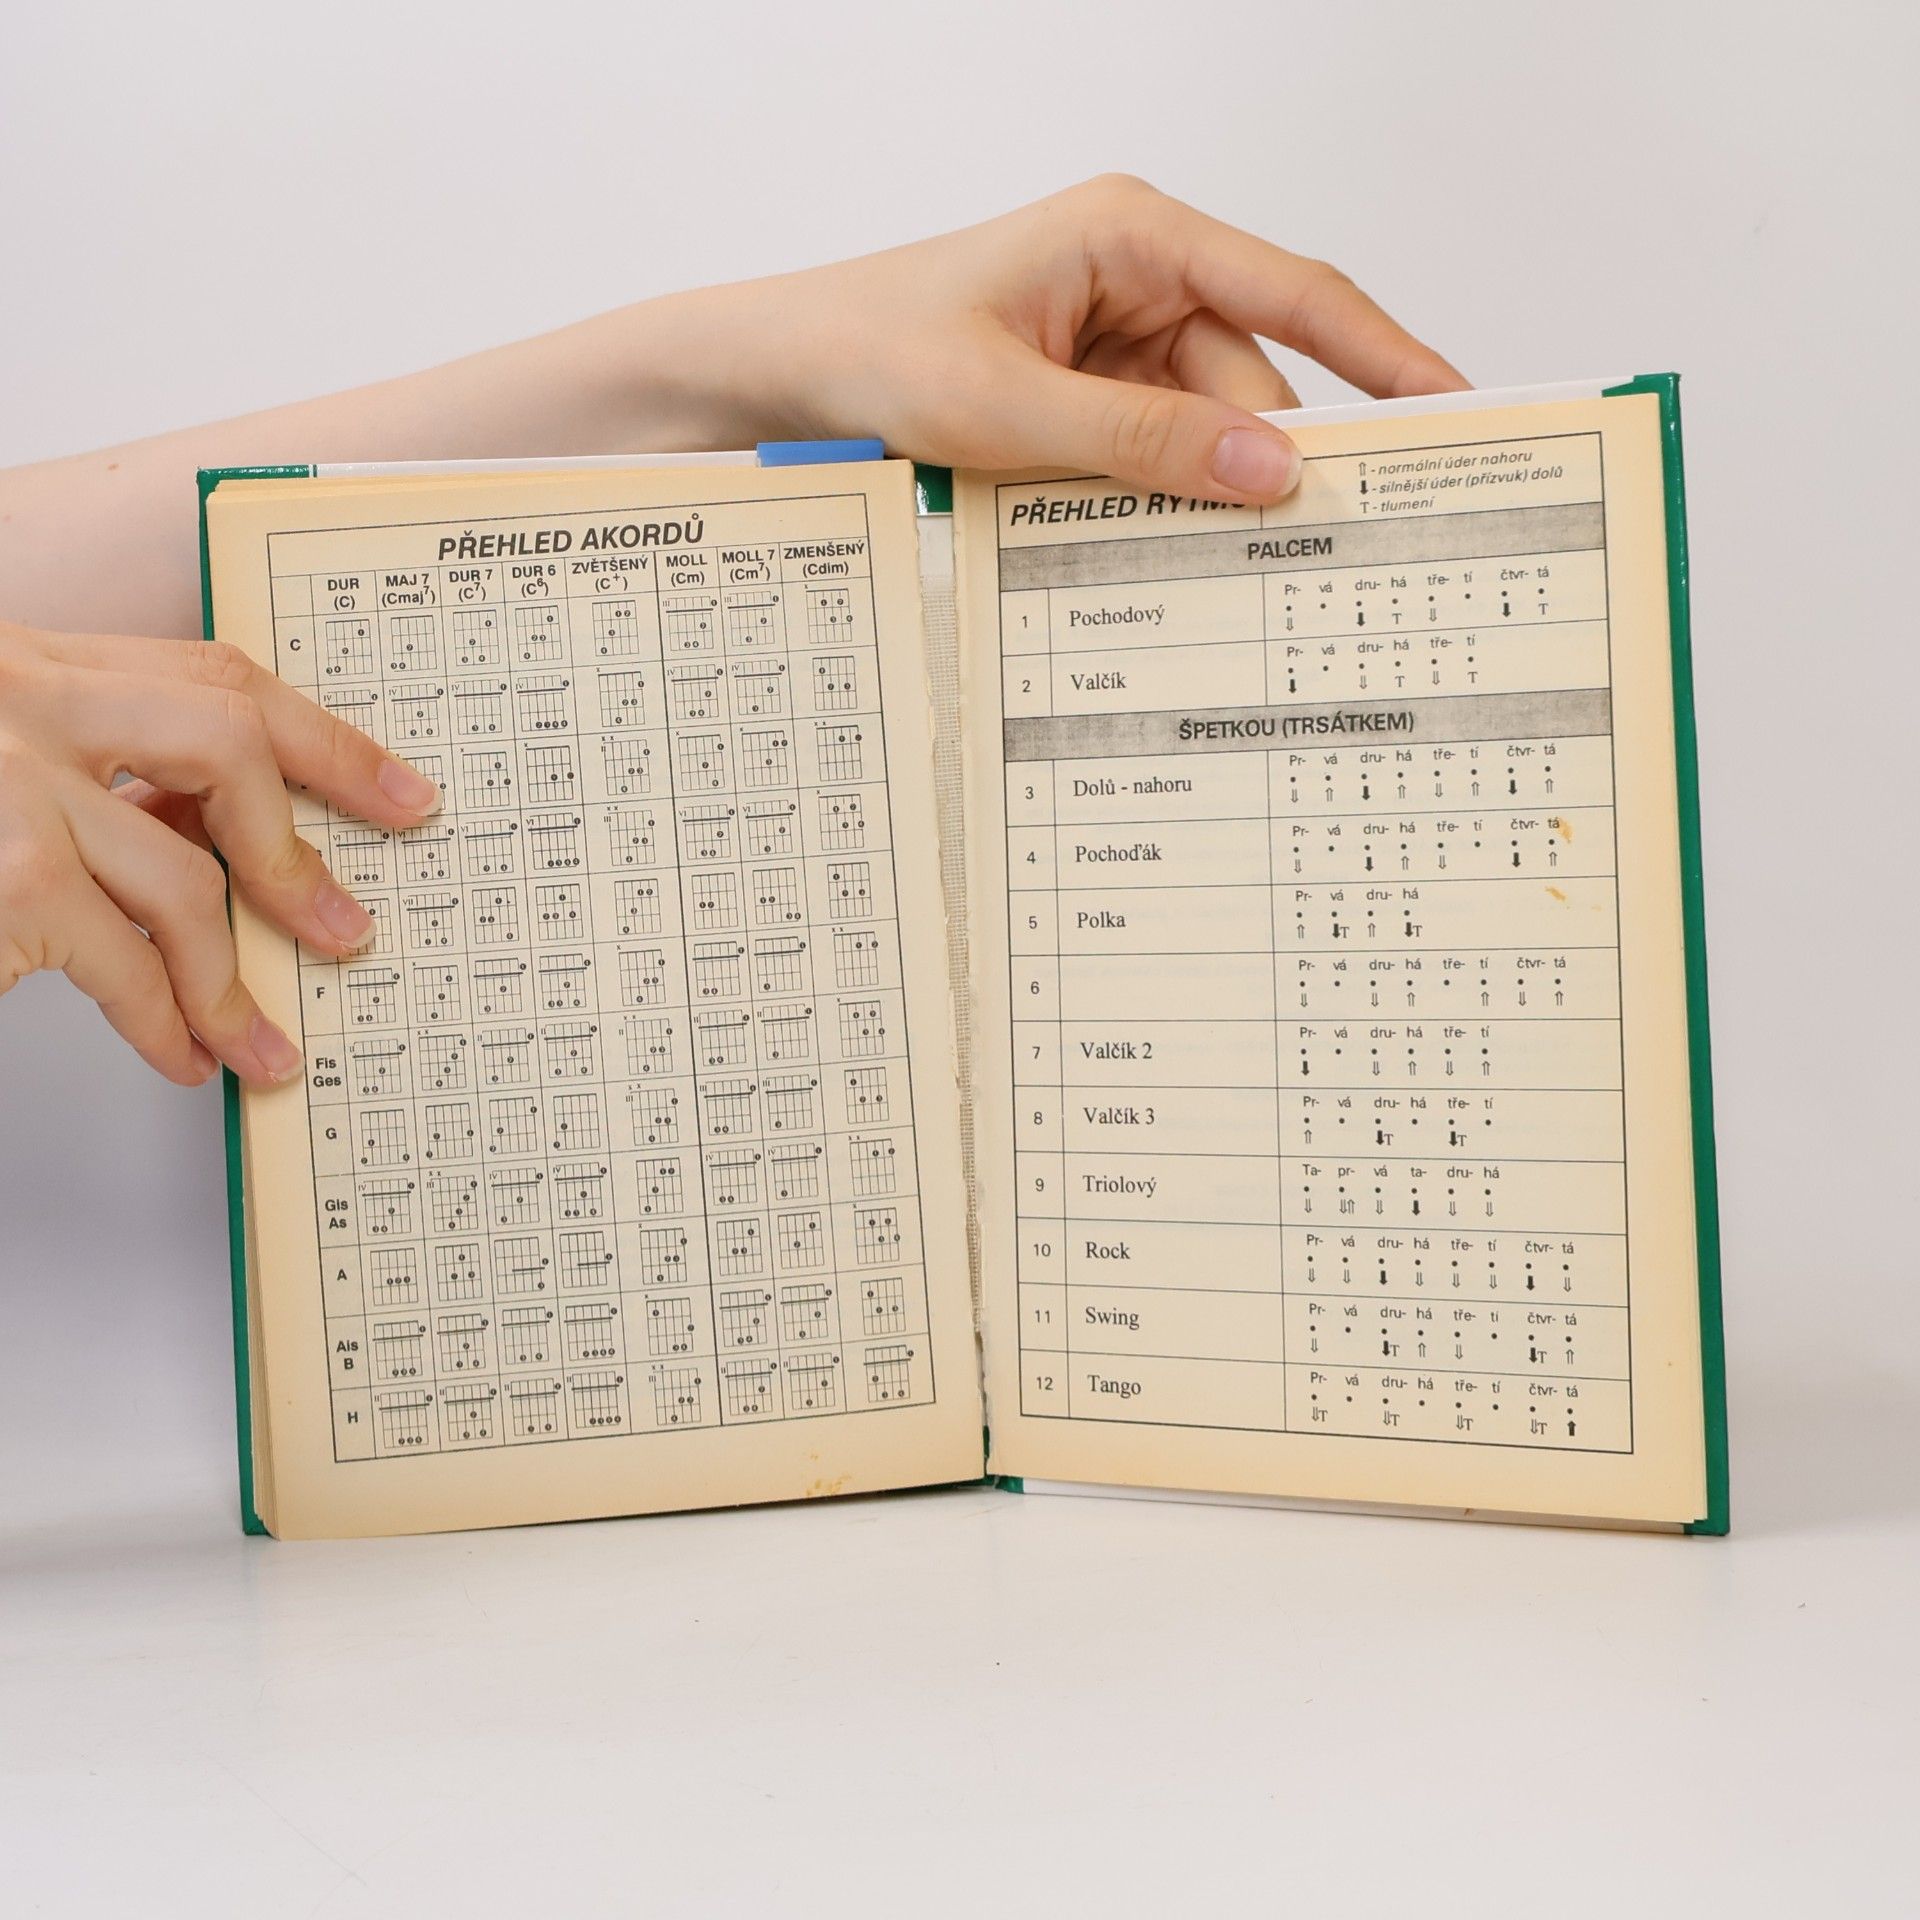 PŘEHLED AKORDŮ
DUR (C) MAJ 7 (Cmaj7) DUR 7 (C7) DUR 6 (C6) ZVĚTŠENÝ (C+) MOLL (Cm) MOLL 7 (Cm7) ZMENŠENÝ (Cdim)
C
F
Fis
Ges
G
Gis
As
A
Ais
B
H
PŘEHLED
⇑ - normální úder nahoru
⬇ - silnější úder (přízvuk) dolů
T - tlumení
PALCEM
1 Pochodový
Pr- vá dru- há tře- tí čtvr- tá
⇓ ⬇ T ⇓ ⬇ T
2 Valčík
Pr- vá dru- há tře- tí
⬇ ⇓ T ⇓ T
ŠPETKOU (TRSÁTKEM)
3 Dolů - nahoru
Pr- vá dru- há tře- tí čtvr- tá
⇓ ⇑ ⬇ ⇑ ⇓ ⇑ ⬇ ⇑
4 Pochoďák
Pr- vá dru- há tře- tí čtvr- tá
⇓ ⬇ ⇑ ⇓ ⬇ ⇑
5 Polka
Pr- vá dru- há
⇑ ⬇T ⇑ ⬇T
6
Pr- vá dru- há tře- tí čtvr- tá
⇓ ⇓ ⇑ ⇑ ⇓ ⇑
7 Valčík 2
Pr- vá dru- há tře- tí
⬇ ⇓ ⇑ ⇓ ⇑
8 Valčík 3
Pr- vá dru- há tře- tí
⇑ ⬇T ⬇T
9 Triolový
Ta- pr- vá ta- dru- há
⇓ ⇓⇑ ⇓ ⬇ ⇓ ⇓
10 Rock
Pr- vá dru- há tře- tí čtvr- tá
⇓ ⇓ ⬇ ⇓ ⇓ ⇓ ⬇ ⇓
11 Swing
Pr- vá dru- há tře- tí čtvr- tá
⇓ ⬇T ⇑ ⇓ ⬇T ⇑
12 Tango
Pr- vá dru- há tře- tí čtvr- tá
⇓T ⇓T ⇓T ⇓T ⬆